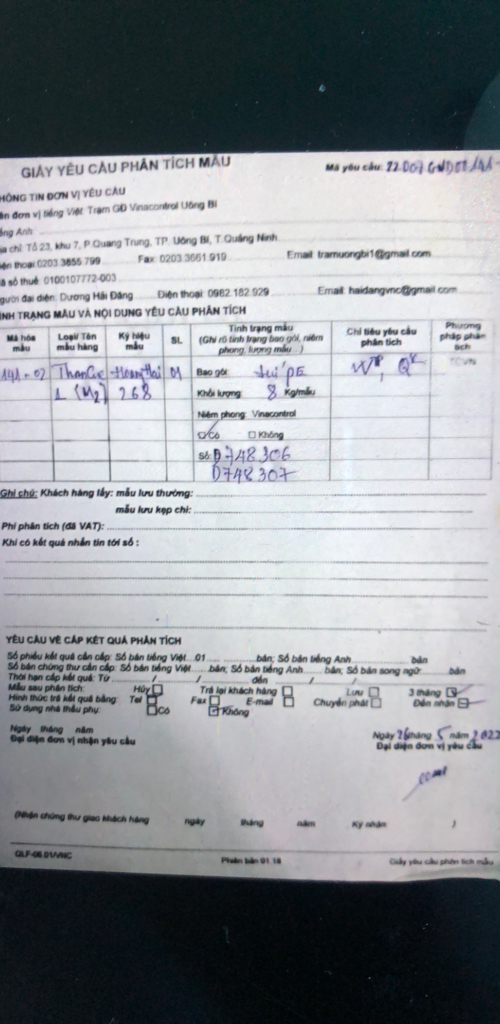 GIẤY YÊU CẦU PHÂN TÍCH MẪU
Mã yêu cầu: 22.007
HÔNG TIN ĐƠN VỊ YÊU CẦU
ên đơn vị tiếng Việt: Trạm GĐ Vinacontrol Uông Bí
ếng Anh
ịa chỉ: Tổ 23, khu 7, P.Quang Trung, TP. Uông Bí, T.Quảng Ninh
iện thoại:0203.3855.799 Fax: 0203.3661.919 Email: tramuongbi1@gmail.com
ã số thuế: 0100107772-003
gười đại diện: Dương Hải Đăng Điện thoại: 0982.182.929 Email: haidangvnc@gmail.com
ÌNH TRẠNG MẪU VÀ NỘI DUNG YÊU CẦU PHÂN TÍCH
Mã hóa mẫu
Loại/ Tên mẫu hàng
Ký hiệu mẫu
SL
Tình trạng mẫu
(Ghi rõ tình trạng bao gói, niêm phong, lượng mẫu...)
Chỉ tiêu yêu cầu phân tích
Phương pháp phân tích
141-02 01 Bao gói: túi PE TCVN
1 (M2) 268 Khối lượng: 8 Kg/mẫu
Niêm phong: Vinacontrol
Có Không
Số: D748306
D748307
Ghi chú: Khách hàng lấy: mẫu lưu thường:
mẫu lưu kẹp chì:
Phí phân tích (đã VAT):
Khi có kết quả nhắn tin tới số :
YÊU CẦU VỀ CẤP KẾT QUẢ PHÂN TÍCH
Số phiếu kết quả cần cấp: Số bản tiếng Việt...01 bản; Số bản tiếng Anh bản
Số bản chứng thư cần cấp: Số bản tiếng Việt bản; Số bản tiếng Anh bản; Số bản song ngữ bản
Thời hạn cấp kết quả: Từ / / đến / /
Mẫu sau phân tích: Hủy Trả lại khách hàng Lưu 3 tháng
Hình thức trả kết quả bằng: Tel Fax E-mail Chuyển phát Đến nhận
Sử dụng nhà thầu phụ: Có Không
Ngày tháng năm
Đại diện đơn vị nhận yêu cầu
Ngày 26 tháng 5 năm 2022
Đại diện đơn vị yêu cầu
(Nhận chứng thư giao khách hàng ngày tháng năm Ký nhận )
QLF-06.01/VNC Phiên bản 01.18 Giấy yêu cầu phân tích mẫu